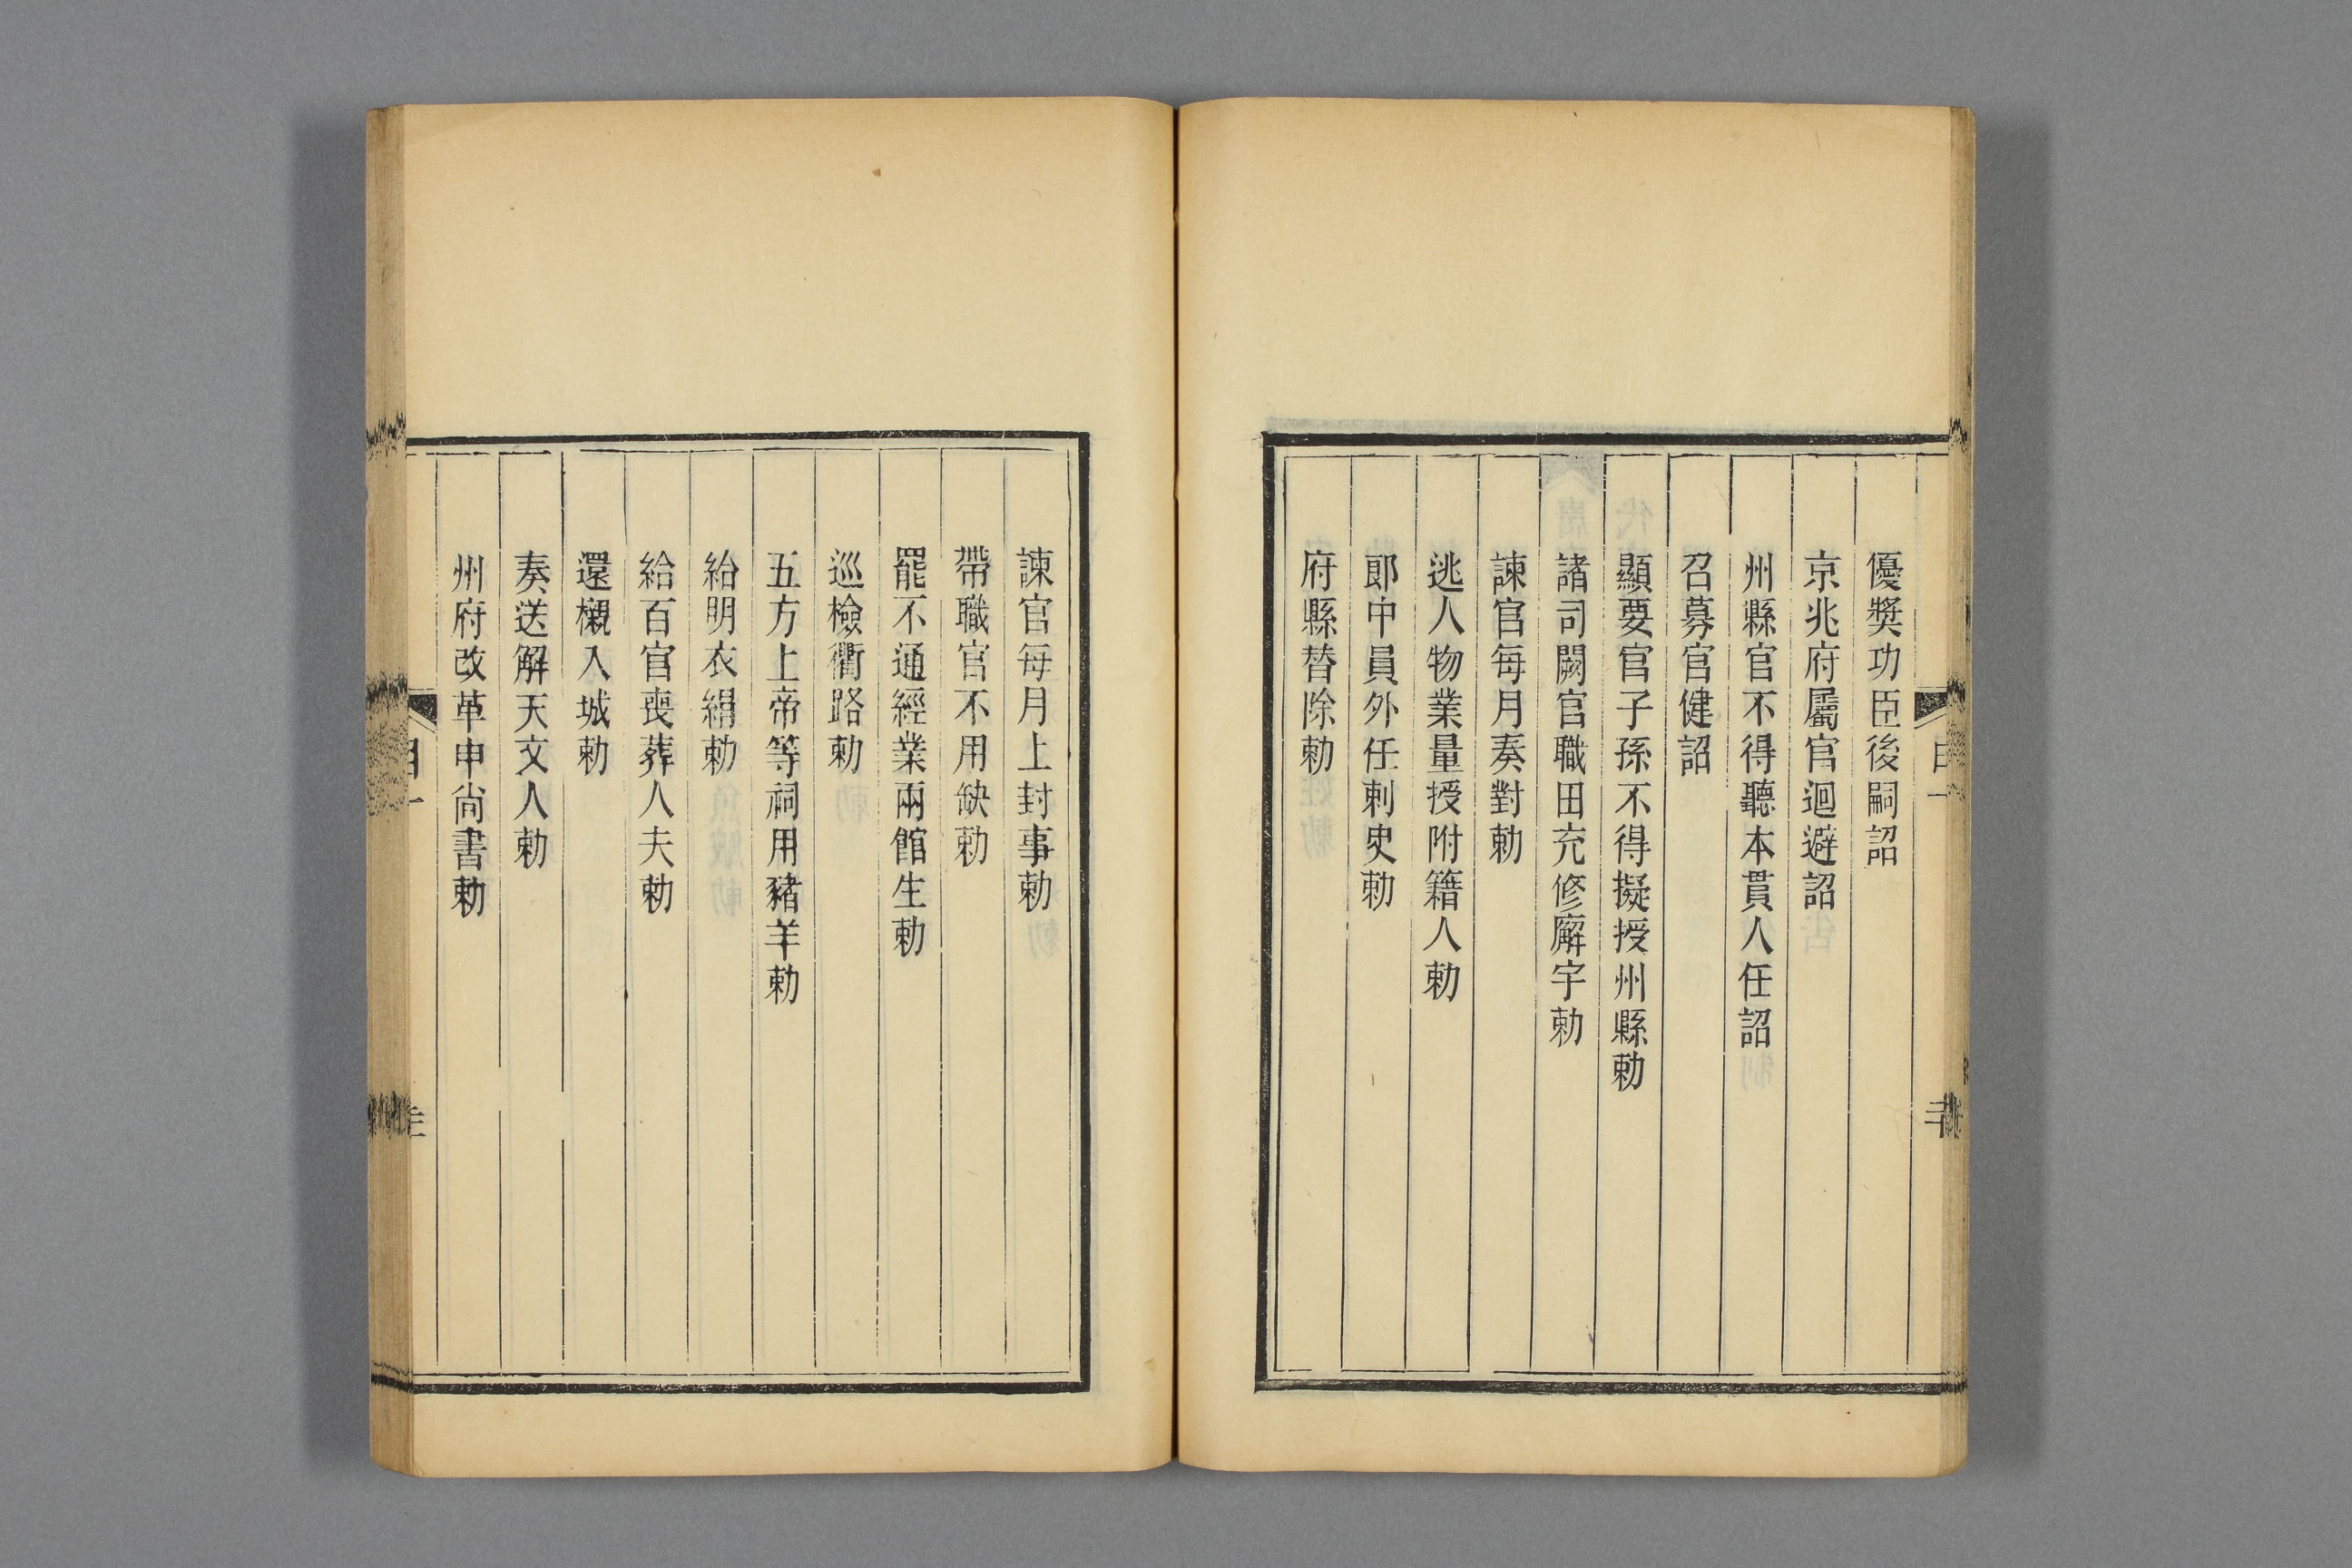 優獎功臣後嗣詔
京兆府屬官迴避詔
州縣官不得聽本貫人任詔
召募官健詔
顯要官子孫不得擬授州縣勅
諸司闕官職田充修廨宇勅
諫官每月奏對勅
逃人物業量授附籍人勅
郎中員外任刺史勅
府縣替除勅
諫官每月上封事勅
帶職官不用缺勅
罷不通經業兩館生勅
巡檢衢路勅
五方上帝等祠用豬羊勅
給明衣絹勅
給百官喪葬人夫勅
還櫬入城勅
奏送解天文人勅
州府改革申尚書勅
目一